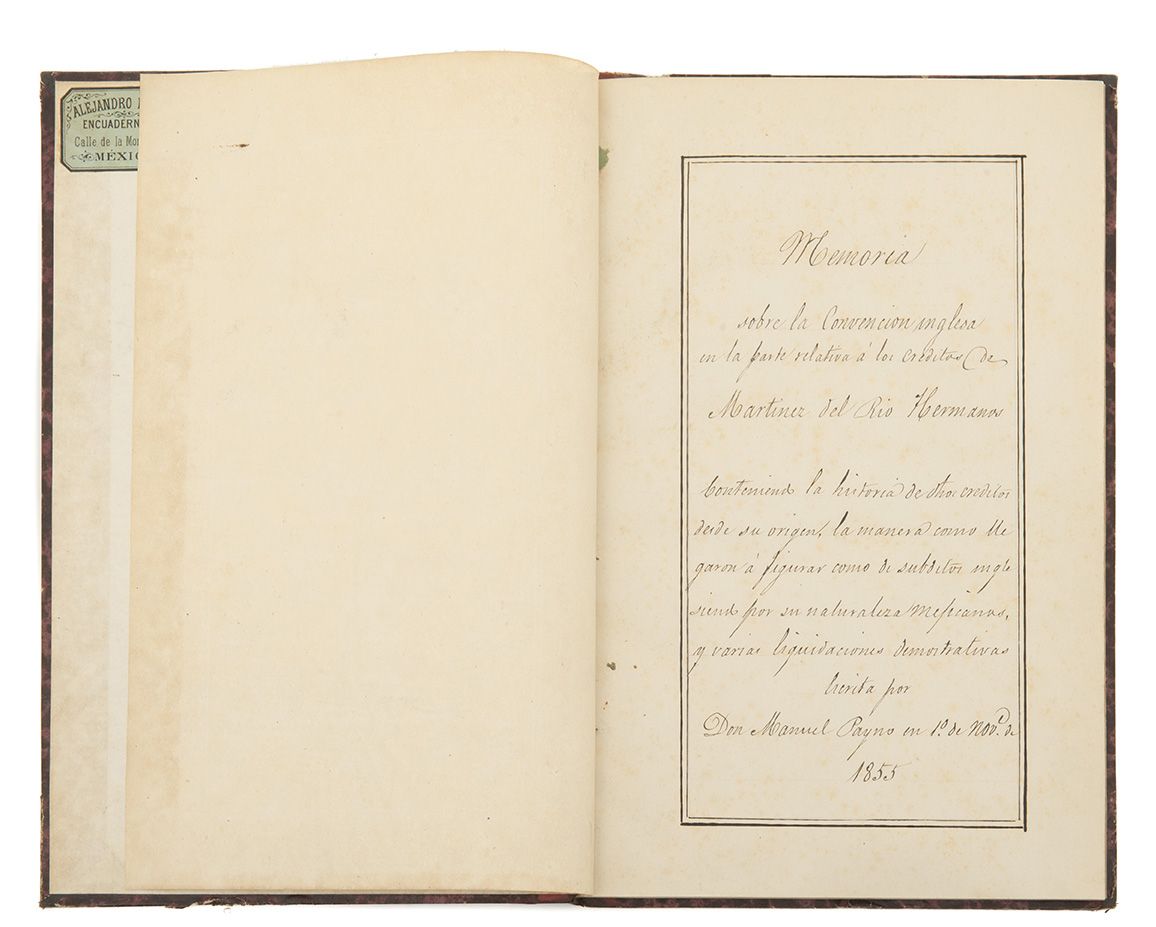 ALEJANDRO
ENCUADERN
Calle de la Mo
MÉXI
Memoria
sobre la Convencion inglesa
en la parte relativa á los creditos de
Martinez del Rio Hermanos
Conteniendo la historia de dhos creditos
desde su origen, la manera como lle
garon á figurar como de subditos ingle
siendo por su naturaleza mejicanos,
y varias liquidaciones demostrativas
Escrita por
Don Manuel Payno en 1º de Nov.e de
1855